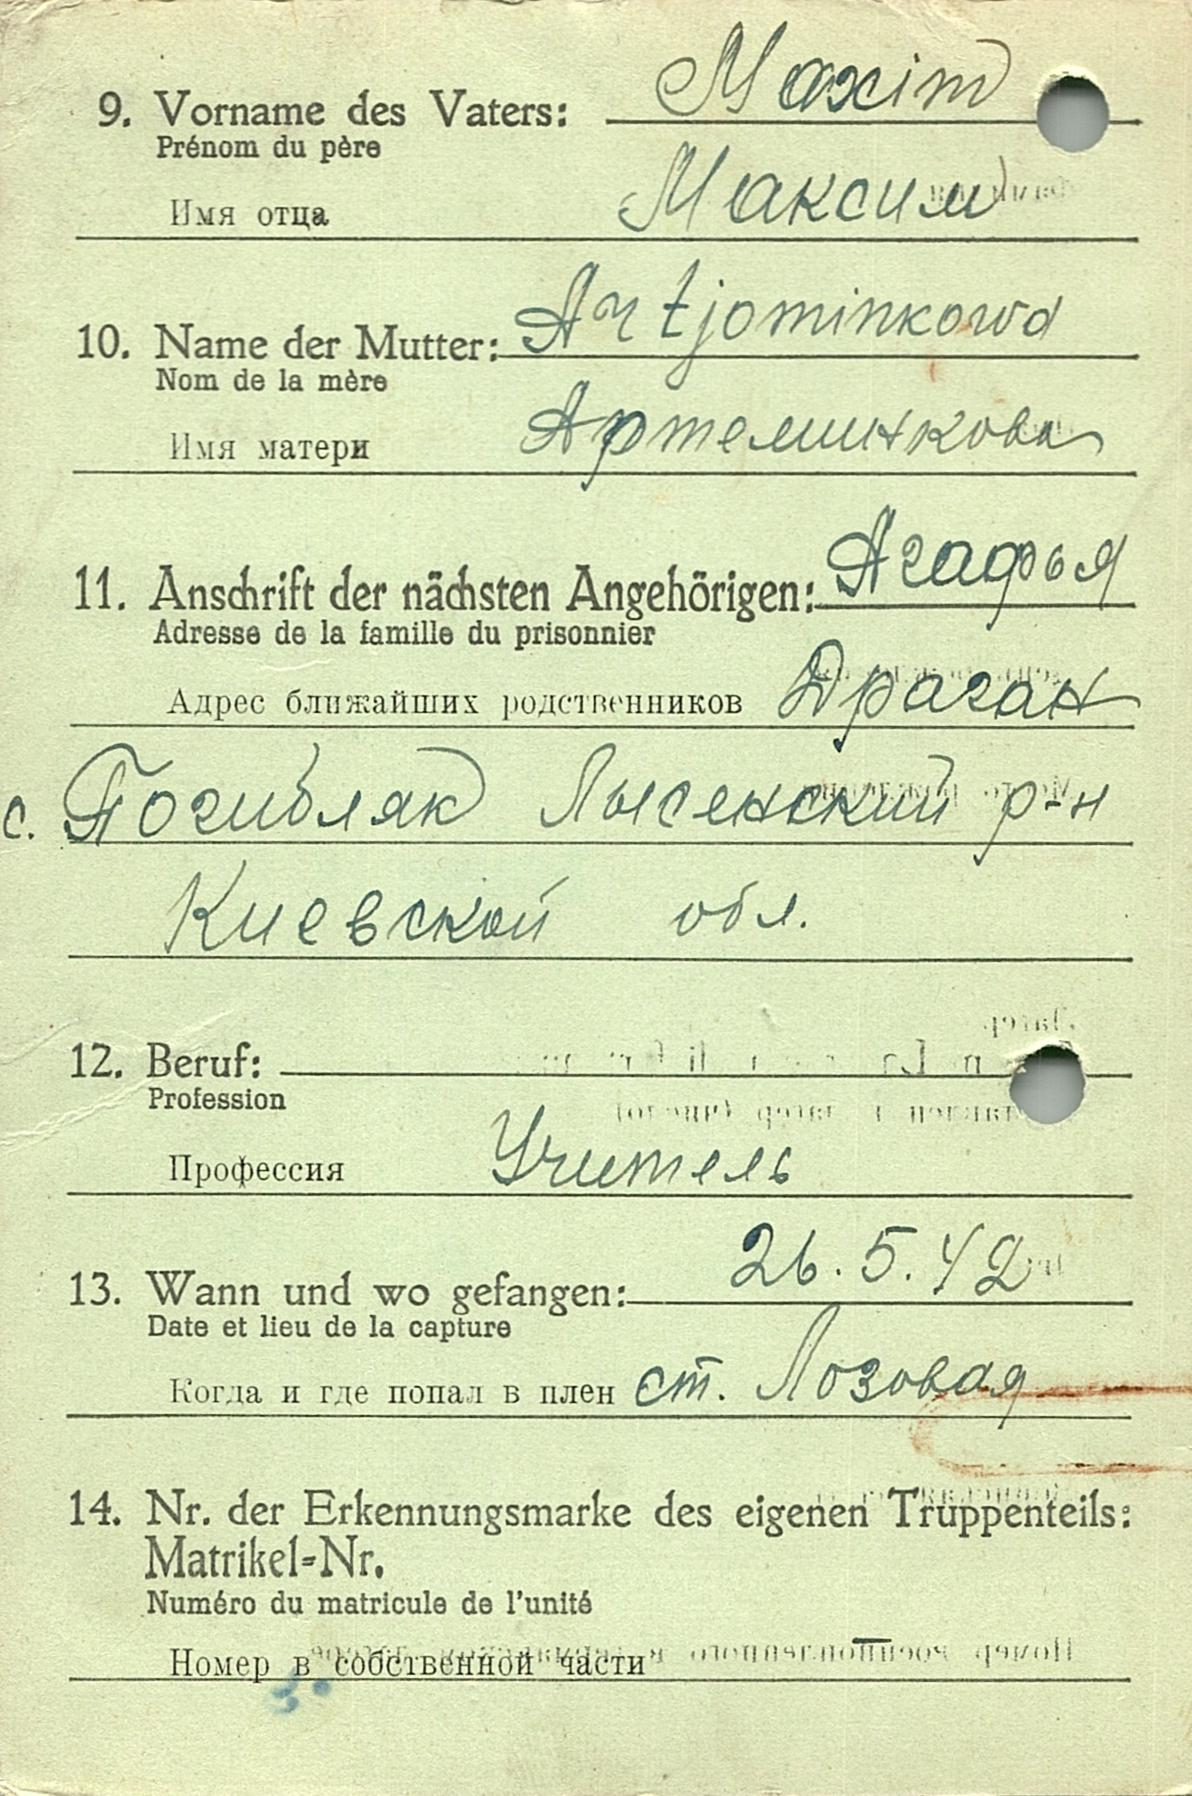 9. Vorname des Vaters: Maxim
Prénom du père
Имя отца Максим
10. Name der Mutter: Artjominkowa
Nom de la mère
Имя матери Артеминкова
11. Anschrift der nächsten Angehörigen: Агафья
Adresse de la famille du prisonnier
Адрес ближайших родственников Драган
с. Погибляк Лысенский р-н
Киевской обл.
12. Beruf:
Profession
Профессия Учитель
13. Wann und wo gefangen: 26.5.42
Date et lieu de la capture
Когда и где попал в плен ст. Лозовая
14. Nr. der Erkennungsmarke des eigenen Truppenteils:
Matrikel-Nr.
Numéro du matricule de l'unité
Номер в собственной части —